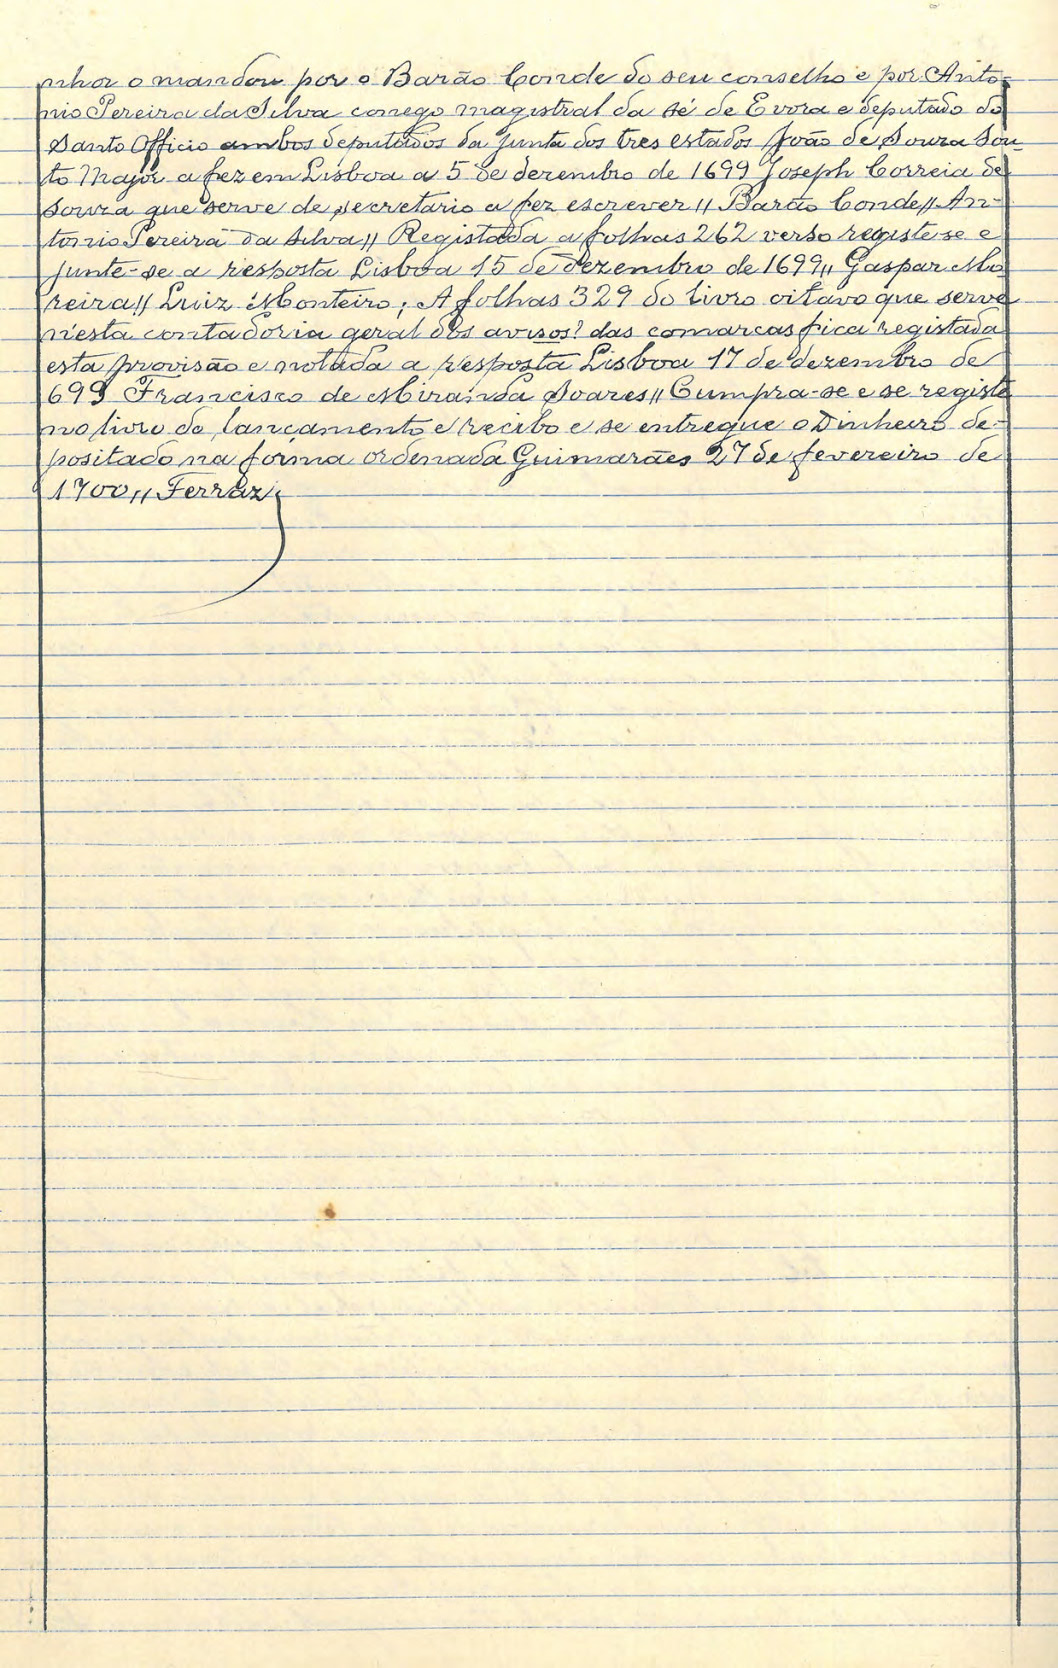 nhor o mandou por o Barão Conde do seu conselho e por Anto-
nio Pereira da Silva conego magistral da sé de Evora e deputado do
Santo Officio ambos deputados da junta dos tres estados João de Souza Sou
to Major a fez em Lisboa a 5 de dezembro de 1699 Joseph Correia de
Souza que serve de secretario a fez escrever // Barão Conde // An-
tonio Pereira da Silva // Registada a folhas 262 verso registe-se e
junte-se a resposta Lisboa 15 de Dezembro de 1699 // Gaspar Mo
reira // Luiz Monteiro; A folhas 329 do livro oitavo que serve
n'esta contadoria geral dos avisos? das comarcas fica registada
esta provisão e notada a resposta Lisboa 17 de dezembro de
699 Francisco de Miranda Soares // Cumpra-se e se registe
no livro do lançamento e recibo e se entregue o Dinheiro de-
positado na forma ordenada Guimarães 27 de fevereiro de
1700 // Ferraz